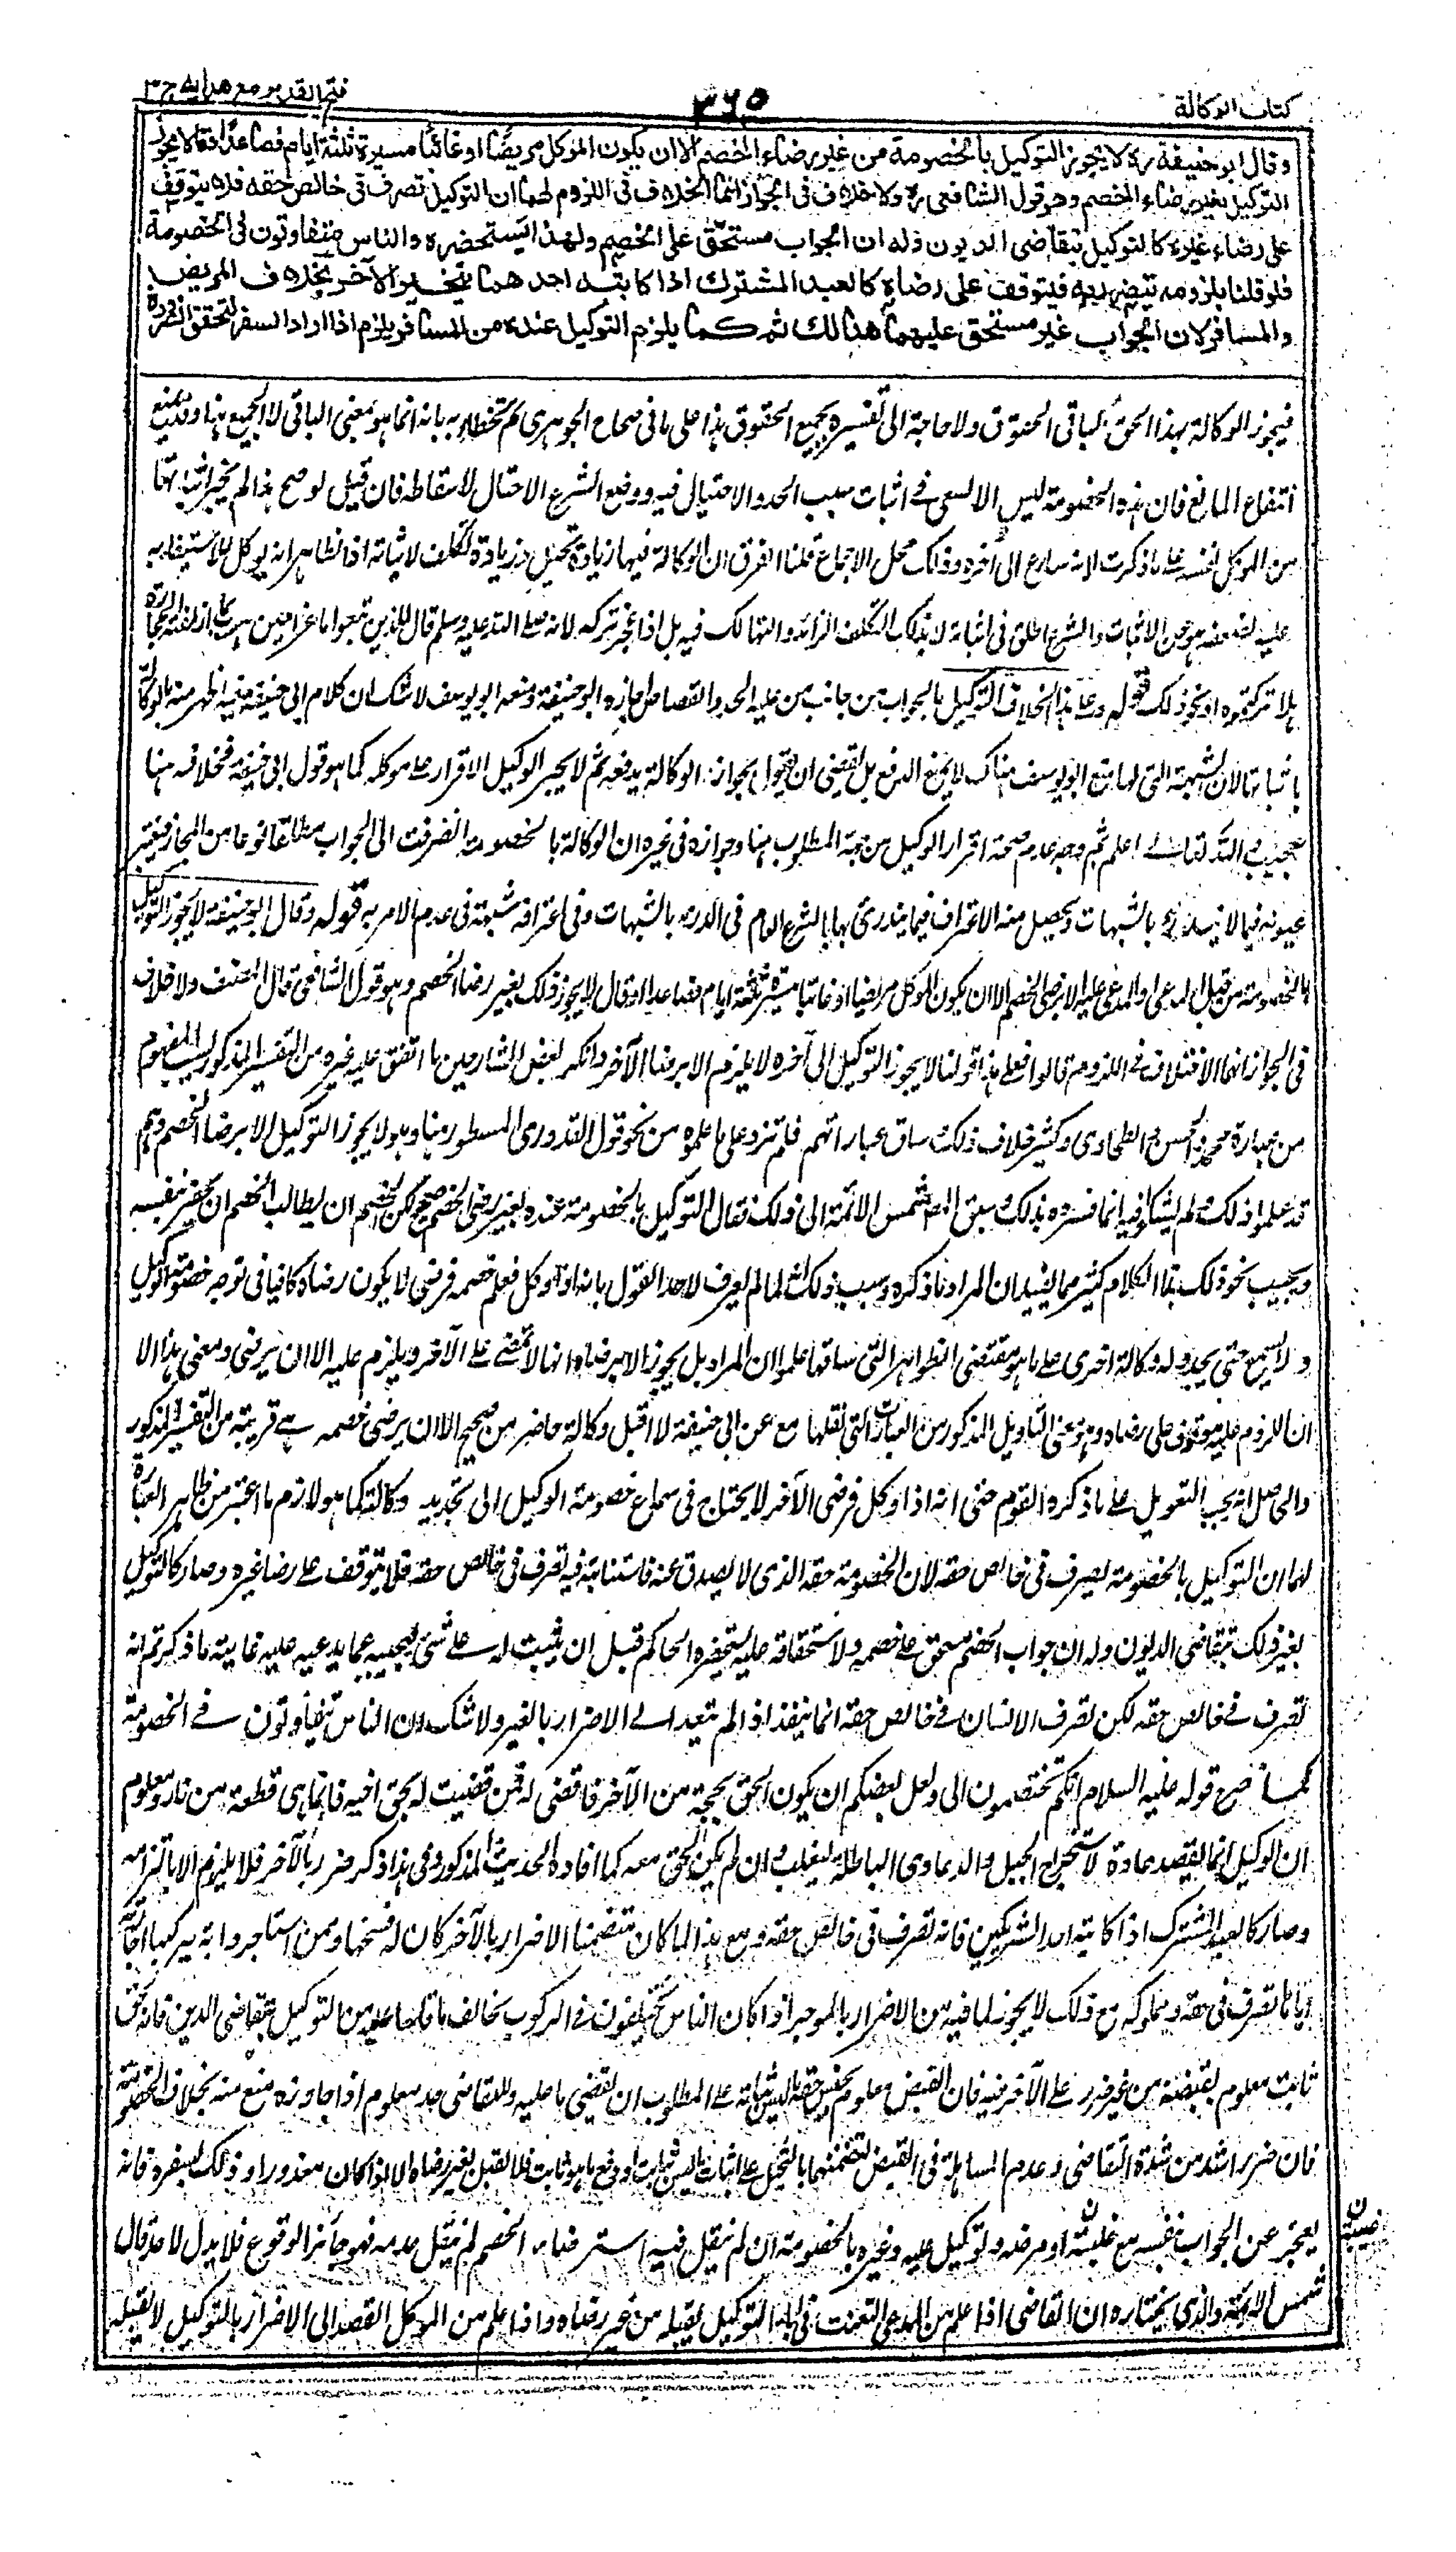 كتاب الوكالة
٣٦٥
فتح القدير مع هدايه ج ٣
وقال ابو حنيفة رح لا يجوز التوكيل بالخصومة من غير رضاء الخصم الا ان يكون الموكل مريضًا او غائبًا مسيرة ثلثة ايام فصاعدًا وقالا يجوز
التوكيل بغير رضاء الخصم وهو قول الشافعي رح ولا خلاف في الجواز انما الخلاف في اللزوم لهما ان التوكيل تصرف في خالص حقه فلا يتوقف
على رضاء غيره كالتوكيل بتقاضى الديون وله ان الجواب مستحق على الخصم ولهذا يستحضره والناس متفاوتون في الخصومة
فلو قلنا بلزومه يتضرر به فيتوقف على رضاه كالعبد المشترك اذا كاتبه احدهما يتخير الآخر بخلاف المريض
والمسافر لان الجواب غير مستحق عليهما هنالك ثم كما يلزم التوكيل عنده من المسافر يلزم اذا اراد السفر لتحقق الضرورة
فيجوز الوكالة بهذا الحق لباقي الحقوق ولا حاجة الى تفسيره بجميع الحقوق بذا على ما في صحاح الجوهرى ثم تخطئه به بانه انما هو بمعنى الباقي لا الجميع هنا وقد يمنع
انتفاء المانع فان هذه الخصومة ليس الا لسعى في اثبات سبب الحد والاحتيال فيه ووضع الشرع الاحتيال لاسقاطه فان قيل لو صح هذا لم يجز اثباتها
من الموكل نفسه على ما ذكرت لانه سارع الى آخره وذلك محل الاجماع قلنا الفرق ان الوكالة فيها زيادة تحيل وزيادة تكلف لاثباته اذ الظاهر انه يوكل للاستيفاء به
عليه لضعفه هو عن الاثبات والشرع اطلق في اثباته لا بذلك التكلف الزائد والتهالك فيه بل اذا عجز تركه لانه صلى الله عليه وسلم قال للذين تبعوا ماعزا حين هرب لما ازلقته الحجارة
هلا تركتموه او نحو ذلك قوله وعلى هذا الخلاف التوكيل بالجواب من جانب من عليه الحد والقصاص اجازه ابو حنيفة ومنعه ابو يوسف لا شك ان كلام ابى حنيفة فيه اظهر منه بالوكالة
باثباتها لان الشبهة التى لها منع ابو يوسف هناك لا يمنع الدفع بل يقتضى ان يقول بجواز الوكالة بدفعه ثم لا يجيز الوكيل الاقرار على موكله كما هو قول ابى حنيفة فخلافه هنا
عجيب والله تعالى اعلم ثم وجه عدم صحة اقرار الوكيل من جهة المطلوب هنا وجوازه في غيره ان الوكالة بالخصومة انصرفت الى الجواب مطلقا نوعا من المجاز فيعتبر
عمومه فيما لا يندرئ بالشبهات ويحصل منه الاعتراف فيما يندرئ بها بالشرع العام في الدرء بالشبهات وفي اعترافه شبهة في عدم الامر به قوله وقال ابو حنيفة لا يجوز التوكيل
بالخصومة من قبل المدعى او المدعى عليه الا برضى الخصم الا ان يكون الموكل مريضا او غائبا مسيرة ثلثة ايام فصاعدا وقالا يجوز ذلك بغير رضا الخصم وهو قول الشافعى قال المصنف ولا خلاف
في الجواز انما الاختلاف في اللزوم قالوا فعلى هذا قولنا لا يجوز التوكيل الى آخره لا يلزم الا برضا الآخر وانكر بعض الشارحين ما اتفق عليه غيره من التفسير المذكور ليس المفهوم
من عبارة محمد بن الحسن والطحاوى وكثير خلاف ذلك ساق عباراتهم فلم تزد على ما علموه من نحو قول القدورى المسطور هنا وهو لا يجوز التوكيل الا برضا الخصم وهم
قد علموا ذلك ولم يشكوا فيه انما فسروه بذلك سبق الى شمس الائمة الى ذلك فقال التوكيل بالخصومة عنده بغير رضى الخصم صحيح لكن للخصم ان يطالب الخصم ان يحضر بنفسه
ويجيب نحو ذلك هذا الكلام كثير مما يفيد ان المراد ما ذكره وسبب ذلك انه لما لم يعرف لاحد القول بانه اذا وكل فعلم خصمه فرضى لا يكون رضاه كافيا في توجه خصومة الوكيل
ولا يسمع حتى يجدد له وكالة اخرى على ما هو مقتضى الظواهر التى ساقها علموا ان المراد بل يجوز الا برضاه انها لا تمضى على الآخر ويلزم عليه الا ان يرضى ومعنى هذا الا
ان اللزوم عليه موقوف على رضاه وهو معنى التاويل المذكور من العبارات التى نقلها مع عن ابى حنيفة لا اقبل وكالة حاضر من صحيح الا ان يرضى خصمه هى قريبة من التفسير المذكور
والحاصل انه يجب التعويل على ما ذكره القوم حتى انه اذا وكل فرضى الآخر لا يحتاج في سماع خصومة الوكيل الى تجديد وكالة كما هو لازم ما اعتبر من ظاهر العبارة
لهما ان التوكيل بالخصومة تصرف في خالص حقه لان الخصومة حقه الذى لا يصدق عنه فاستنابته فيه تصرف في خالص حقه فلا يتوقف على رضا غيره وصار كالتوكيل
بغير ذلك بتقاضى الديون وله ان جواب الخصم مستحق على خصمه ولاستحقاقه عليه يستحضره الحاكم قبل ان يثبت له عليه شئ ليجيبه عما يدعيه عليه غاية ما ذكرتم انه
تصرف في خالص حقه لكن تصرف الانسان في خالص حقه انما ينفذ اذا لم يتعد الى الاضرار بالغير ولا شك ان الناس يتفاوتون في الخصومة
كما صرح قوله عليه السلام انكم تختصمون الى ولعل بعضكم ان يكون الحن بحجته من الآخر فاقضى له فمن قضيت له بحق اخيه فانما هى قطعة من نار ومعلوم
ان الوكيل انما يقصد عادة لاستخراج الحيل والدعاوى الباطلة ليغلب وان لم يكن الحق معه كما افاده الحديث المذكور وفي هذا ذكر ضرر بالآخر فلا يلزم الا بالتزامه
وصار كالعبد المشترك اذا كاتبه احد الشريكين فانه تصرف في خالص حقه ومع هذا لما كان متضمنا الاضرار بالآخر كان له فسخها ومن استاجر دابة ليركبها
تصرف في حقه ومملوكه مع ذلك لا يجوز لما فيه من الاضرار بالموجر اذا كان الناس يختلفون في الركوب يخالف ما قاسا عليه من التوكيل بتقاضى الدين فانه حق
ثابت معلوم يقبضه من غير ضرر على الآخر فيه فان القبض معلوم بجنس حقه على المطلوب ان يقضى ما عليه وللتقاضى حد معلوم اذا جاوزه منع منه بخلاف الخصومة
فان ضررها اشد من شدة التقاضى وعدم المساهلة في القبض لتضمنها بالتحيل على اثبات ما ليس بثابت او دفع ما هو ثابت فلا يقبل بغير رضاه الا اذا كان معذورا وذلك بسفره فانه
يعجز عن الجواب بنفسه مع غيبته او مرضه ولو توكيل عليه وغيره بالخصومة ان لم ينقل فيه استرضاء الخصم لم ينقل عدمه فهو جائز الوقوع فلا يدل لاحد قال
شمس الائمة والذى يختاره ان القاضى اذا علم من المدعى التعنت في اباء التوكيل يقبله من غير رضاه واذا علم من الموكل القصد الى الاضرار بالتوكيل لا يقبله